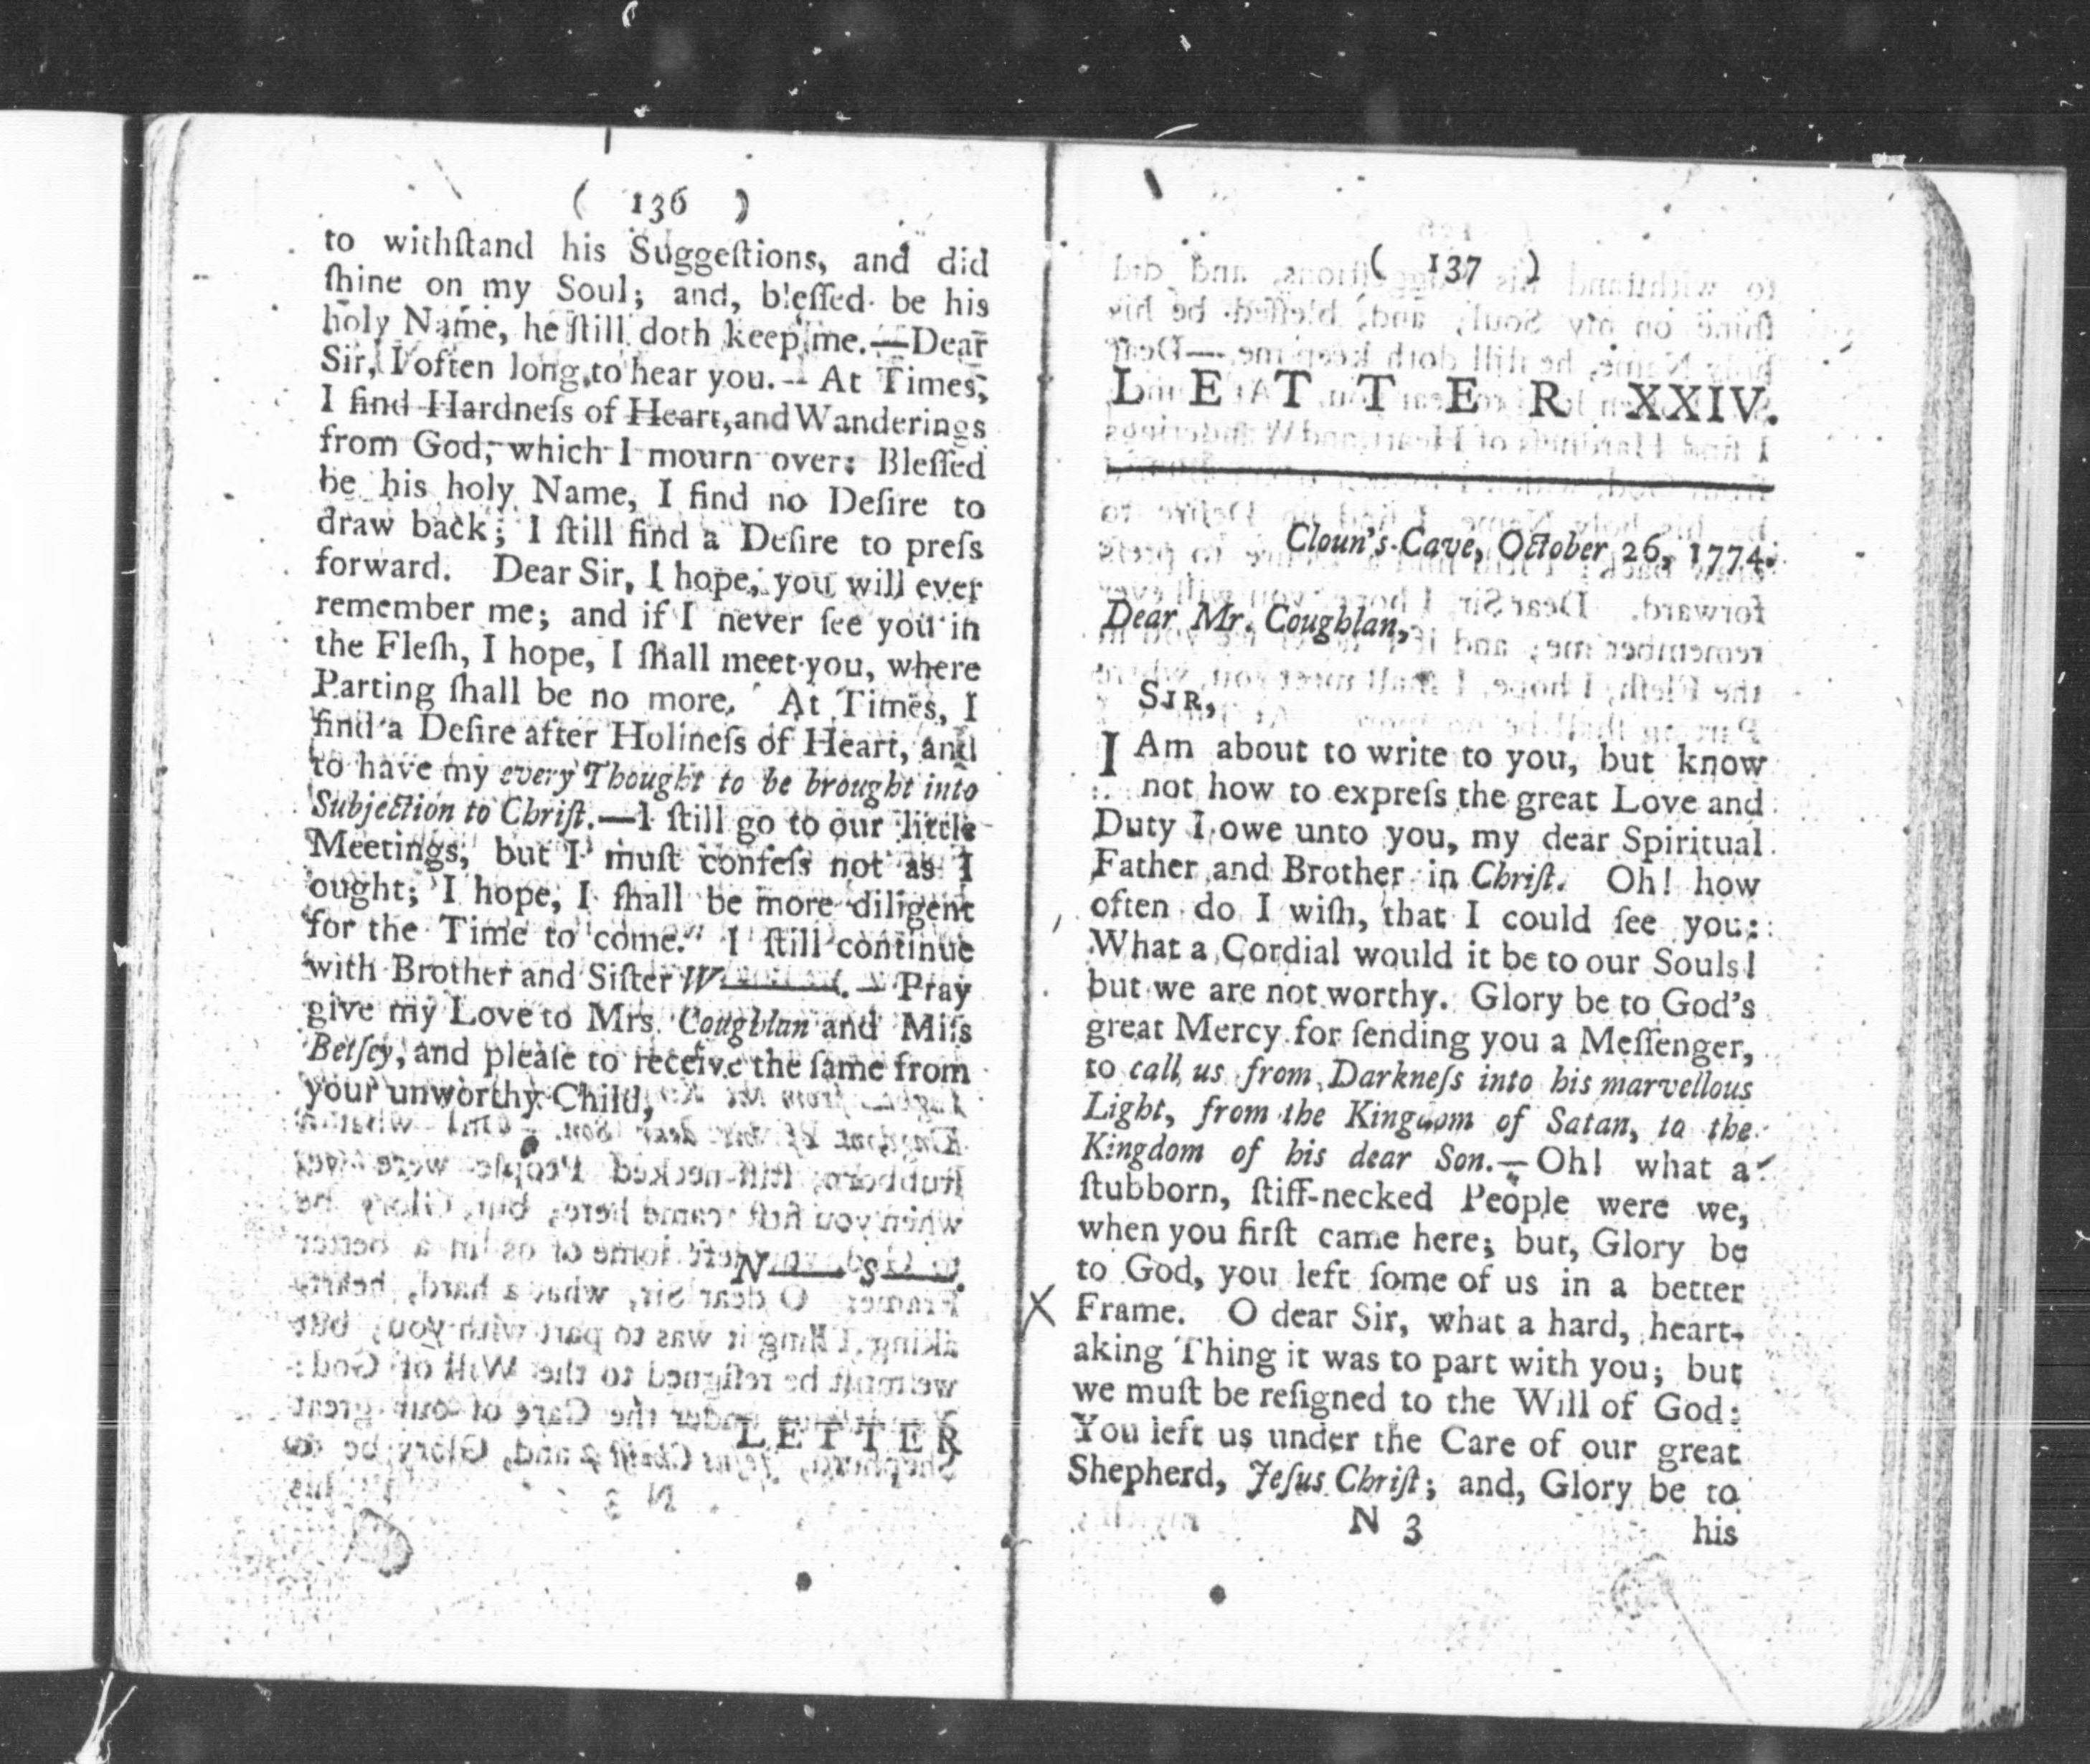 ( 136 )
to withſtand his Suggeſtions, and did
ſhine on my Soul; and, bleſſed be his
holy Name, he ſtill doth keep me.—Dear
Sir, I often long to hear you.—At Times,
I find Hardneſs of Heart, and Wanderings
from God, which I mourn over: Bleſſed
be his holy Name, I find no Deſire to
draw back; I ſtill find a Deſire to preſs
forward. Dear Sir, I hope, you will ever
remember me; and if I never ſee you in
the Fleſh, I hope, I ſhall meet you, where
Parting ſhall be no more. At Times, I
find a Deſire after Holineſs of Heart, and
to have my every Thought to be brought into
Subjection to Chriſt.—I ſtill go to our little
Meetings, but I muſt confeſs not as I
ought; I hope, I ſhall be more diligent
for the Time to come. I ſtill continue
with Brother and Siſter W———.—Pray
give my Love to Mrs. Coughlan and Miſs
Betſey, and pleaſe to receive the ſame from
your unworthy Child,
N—— S——.
LETTER
( 137 )
LETTER XXIV.
Cloun's-Cave, October 26, 1774.
Dear Mr. Coughlan,
SIR,
I Am about to write to you, but know
not how to expreſs the great Love and
Duty I owe unto you, my dear Spiritual
Father and Brother in Chriſt. Oh! how
often do I wiſh, that I could ſee you:
What a Cordial would it be to our Souls!
but we are not worthy. Glory be to God's
great Mercy for ſending you a Meſſenger,
to call us from Darkneſs into his marvellous
Light, from the Kingdom of Satan, to the
Kingdom of his dear Son.—Oh! what a
ſtubborn, ſtiff-necked People were we,
when you firſt came here; but, Glory be
to God, you left ſome of us in a better
Frame. O dear Sir, what a hard, heart-
aking Thing it was to part with you; but
we muſt be reſigned to the Will of God:
You left us under the Care of our great
Shepherd, Jeſus Chriſt; and, Glory be to
N 3 his